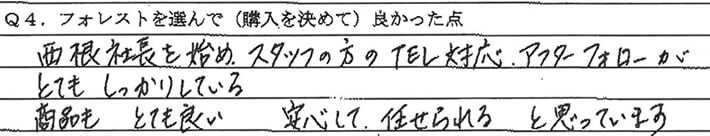 Q4．フォレストを選んで（購入を決めて）良かった点
西根社長を始め、スタッフの方のTEL対応、アフターフォローが
とても しっかりしている
商品も とても良い 安心して、任せられる と思っています